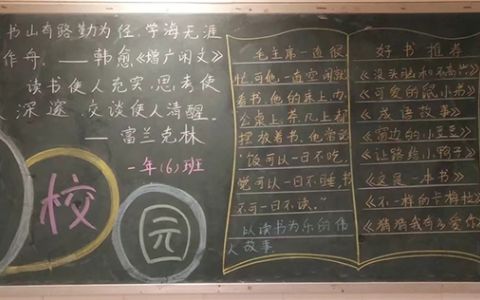 书山有路勤为径,学海无涯
作舟。——韩愈《增广闲文》
读书使人充实,思考使
人深邃,交谈使人清醒。
——富兰克林
一年(6)班
校
园
毛主席一直很
忙,可他一直空闲就
看书,他的床上,办
公桌上,茶几上都
摆放着书,他常说
“饭可以一日不吃,
觉可以一日不睡,书
不可一日不读。”
以读书为乐的伟
人故事
好书推荐
《没头脑和不高兴》
《可爱的鼠小弟》
《成语故事》
《窗边的小豆豆》
《让路给小鸭子》
《这是一本书》
《不一样的卡梅拉》
《猜猜我有多爱你》